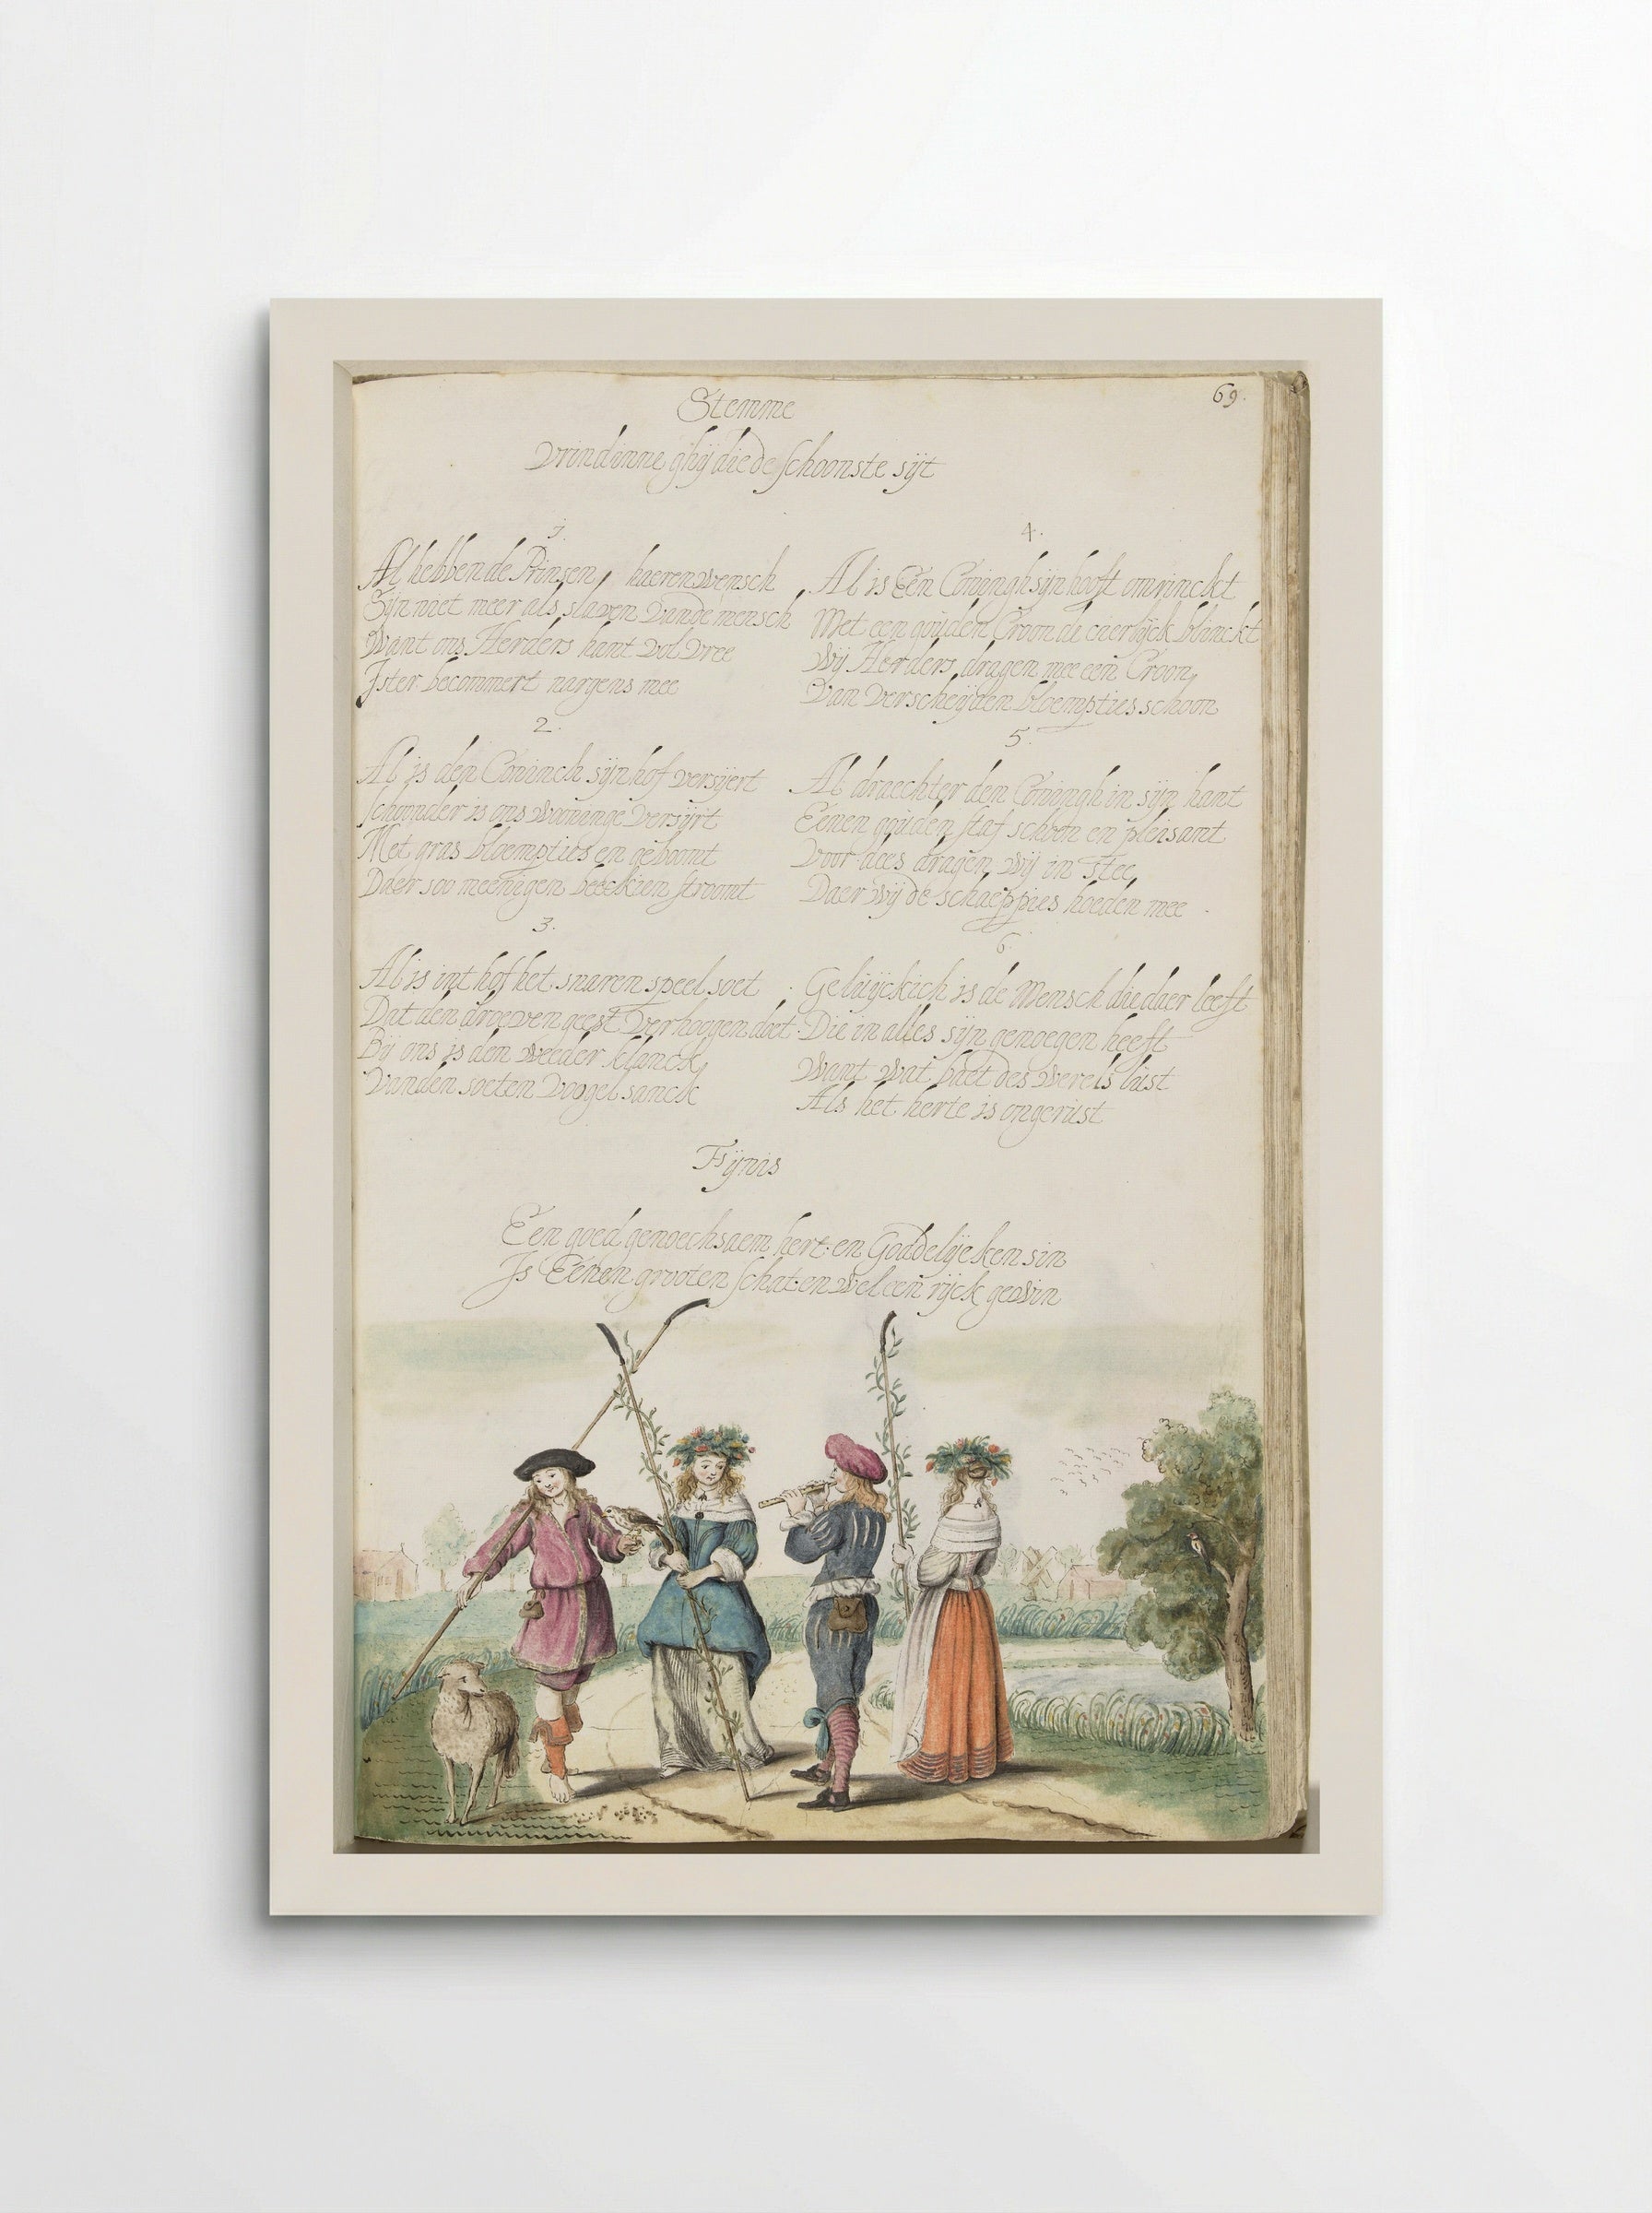 69.
Stemme
Vrindinne ghij die de schoonste sijt
1.
Al hebben de Prinsen haeren wensch
Sijn niet meer als slaven vande mensch
Want ons Herders hant vol vree
Ister becommert nargens mee
2.
Al is den Coninck sijn hof versijert
schoonder is ons wooninge versijrt
Met gras bloempties en geboomt
Daer soo meenigen beeckien stroomt
3.
Al is int hof het snaren speel soet
Dat den droeven geest verhoogen doet
Bij ons is den weeder klanck
Vanden soeten voogel sanck
4.
Al is Een Coningh sijn hooft omrinckt
Met een gouden Croon de cierlijck blinckt
Wij Herders dragen mee een Croon
Van verscheijden bloempties schoon
5.
Al draechter den Coningh in sijn hant
Eenen gouden staf schoon en pleisant
Voor dees dragen wij in stee
Daer wij de schaeppies hoeden mee
6.
Geluijckich is de Mensch die daer leeft
Die in alles sijn genoegen heeft
Want wat baet des werels lust
Als het herte is ongerust
Fijnis
Een goed genoechsaem hert en Goddelijcken sin
Is Eenen grooten schat en wel een rijck gewin